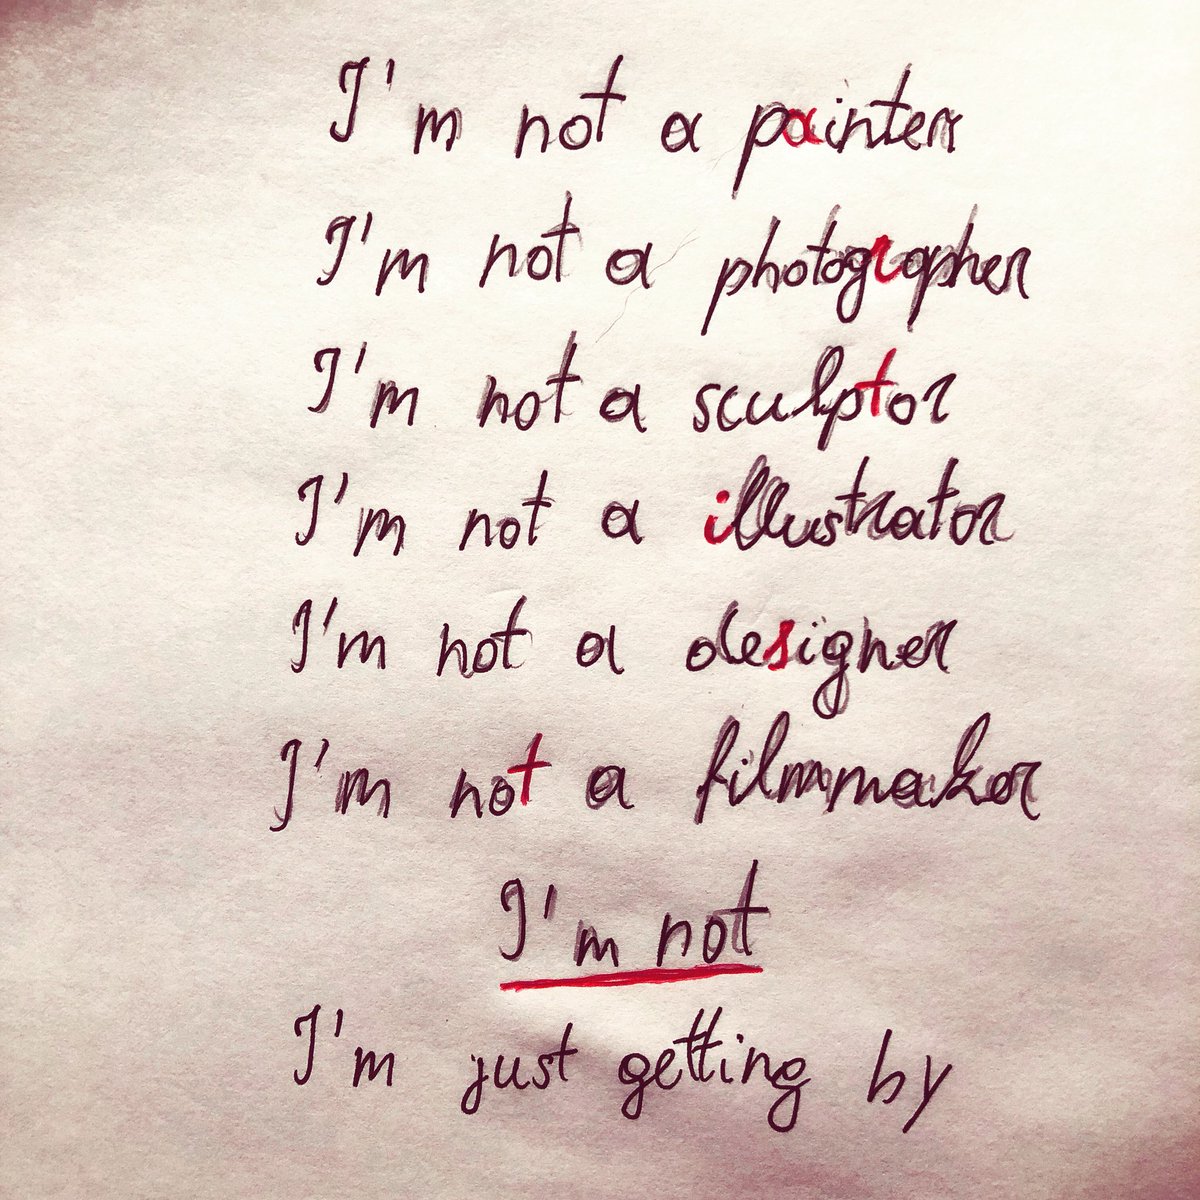 I'm not a painter
I'm not a photographer
I'm not a sculptor
I'm not a illustrator
I'm not a designer
I'm not a filmmaker
I'm not
I'm just getting by